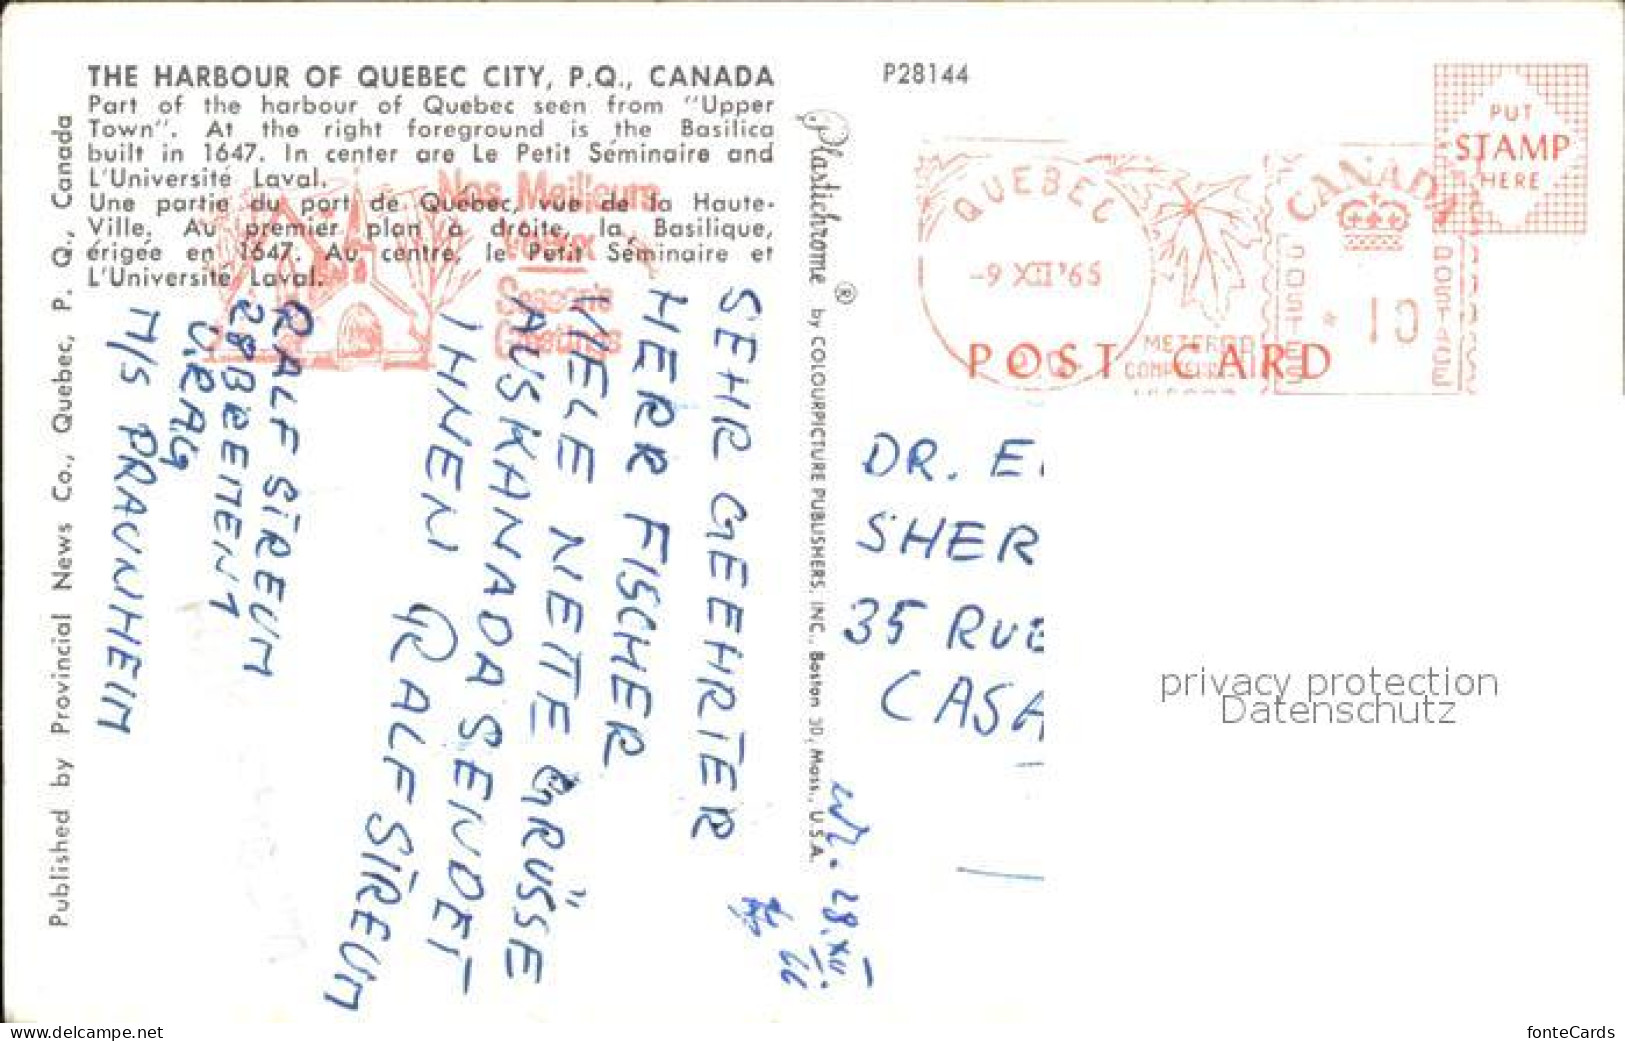 THE HARBOUR OF QUEBEC CITY, P.Q., CANADA
Part of the harbour of Quebec seen from "Upper
Town". At the right foreground is the Basilica
built in 1647. In center are Le Petit Séminaire and
L'Université Laval.
Une partie du port de Québec, vue de la Haute-
Ville. Au premier plan à droite, la Basilique,
érigée en 1647. Au centre, le Petit Séminaire et
L'Université Laval.
Nos Meilleurs
Voeux
Season's
Greetings
Published by Provincial News Co., Quebec, P. Q., Canada
SEHR GEEHRTER
HERR FISCHER
VIELE NETTE GRÜSSE
AUS KANADA SENDET
IHNEN RALF STREUM
RALF STREUM
28 BREMEN 1
M/S PRAUNHEIM
Plastichrome ® by COLOURPICTURE PUBLISHERS, INC., Boston 30, Mass., U.S.A.
P28144
PUT
STAMP
HERE
QUEBEC
-9 XII '65
CANADA
POSTES
POSTAGE
10
METERED
POST CARD
DR. E.
SHER
35 RUE
CASA
28. XII.
privacy protection
Datenschutz
www.delcampe.net
fonteCards